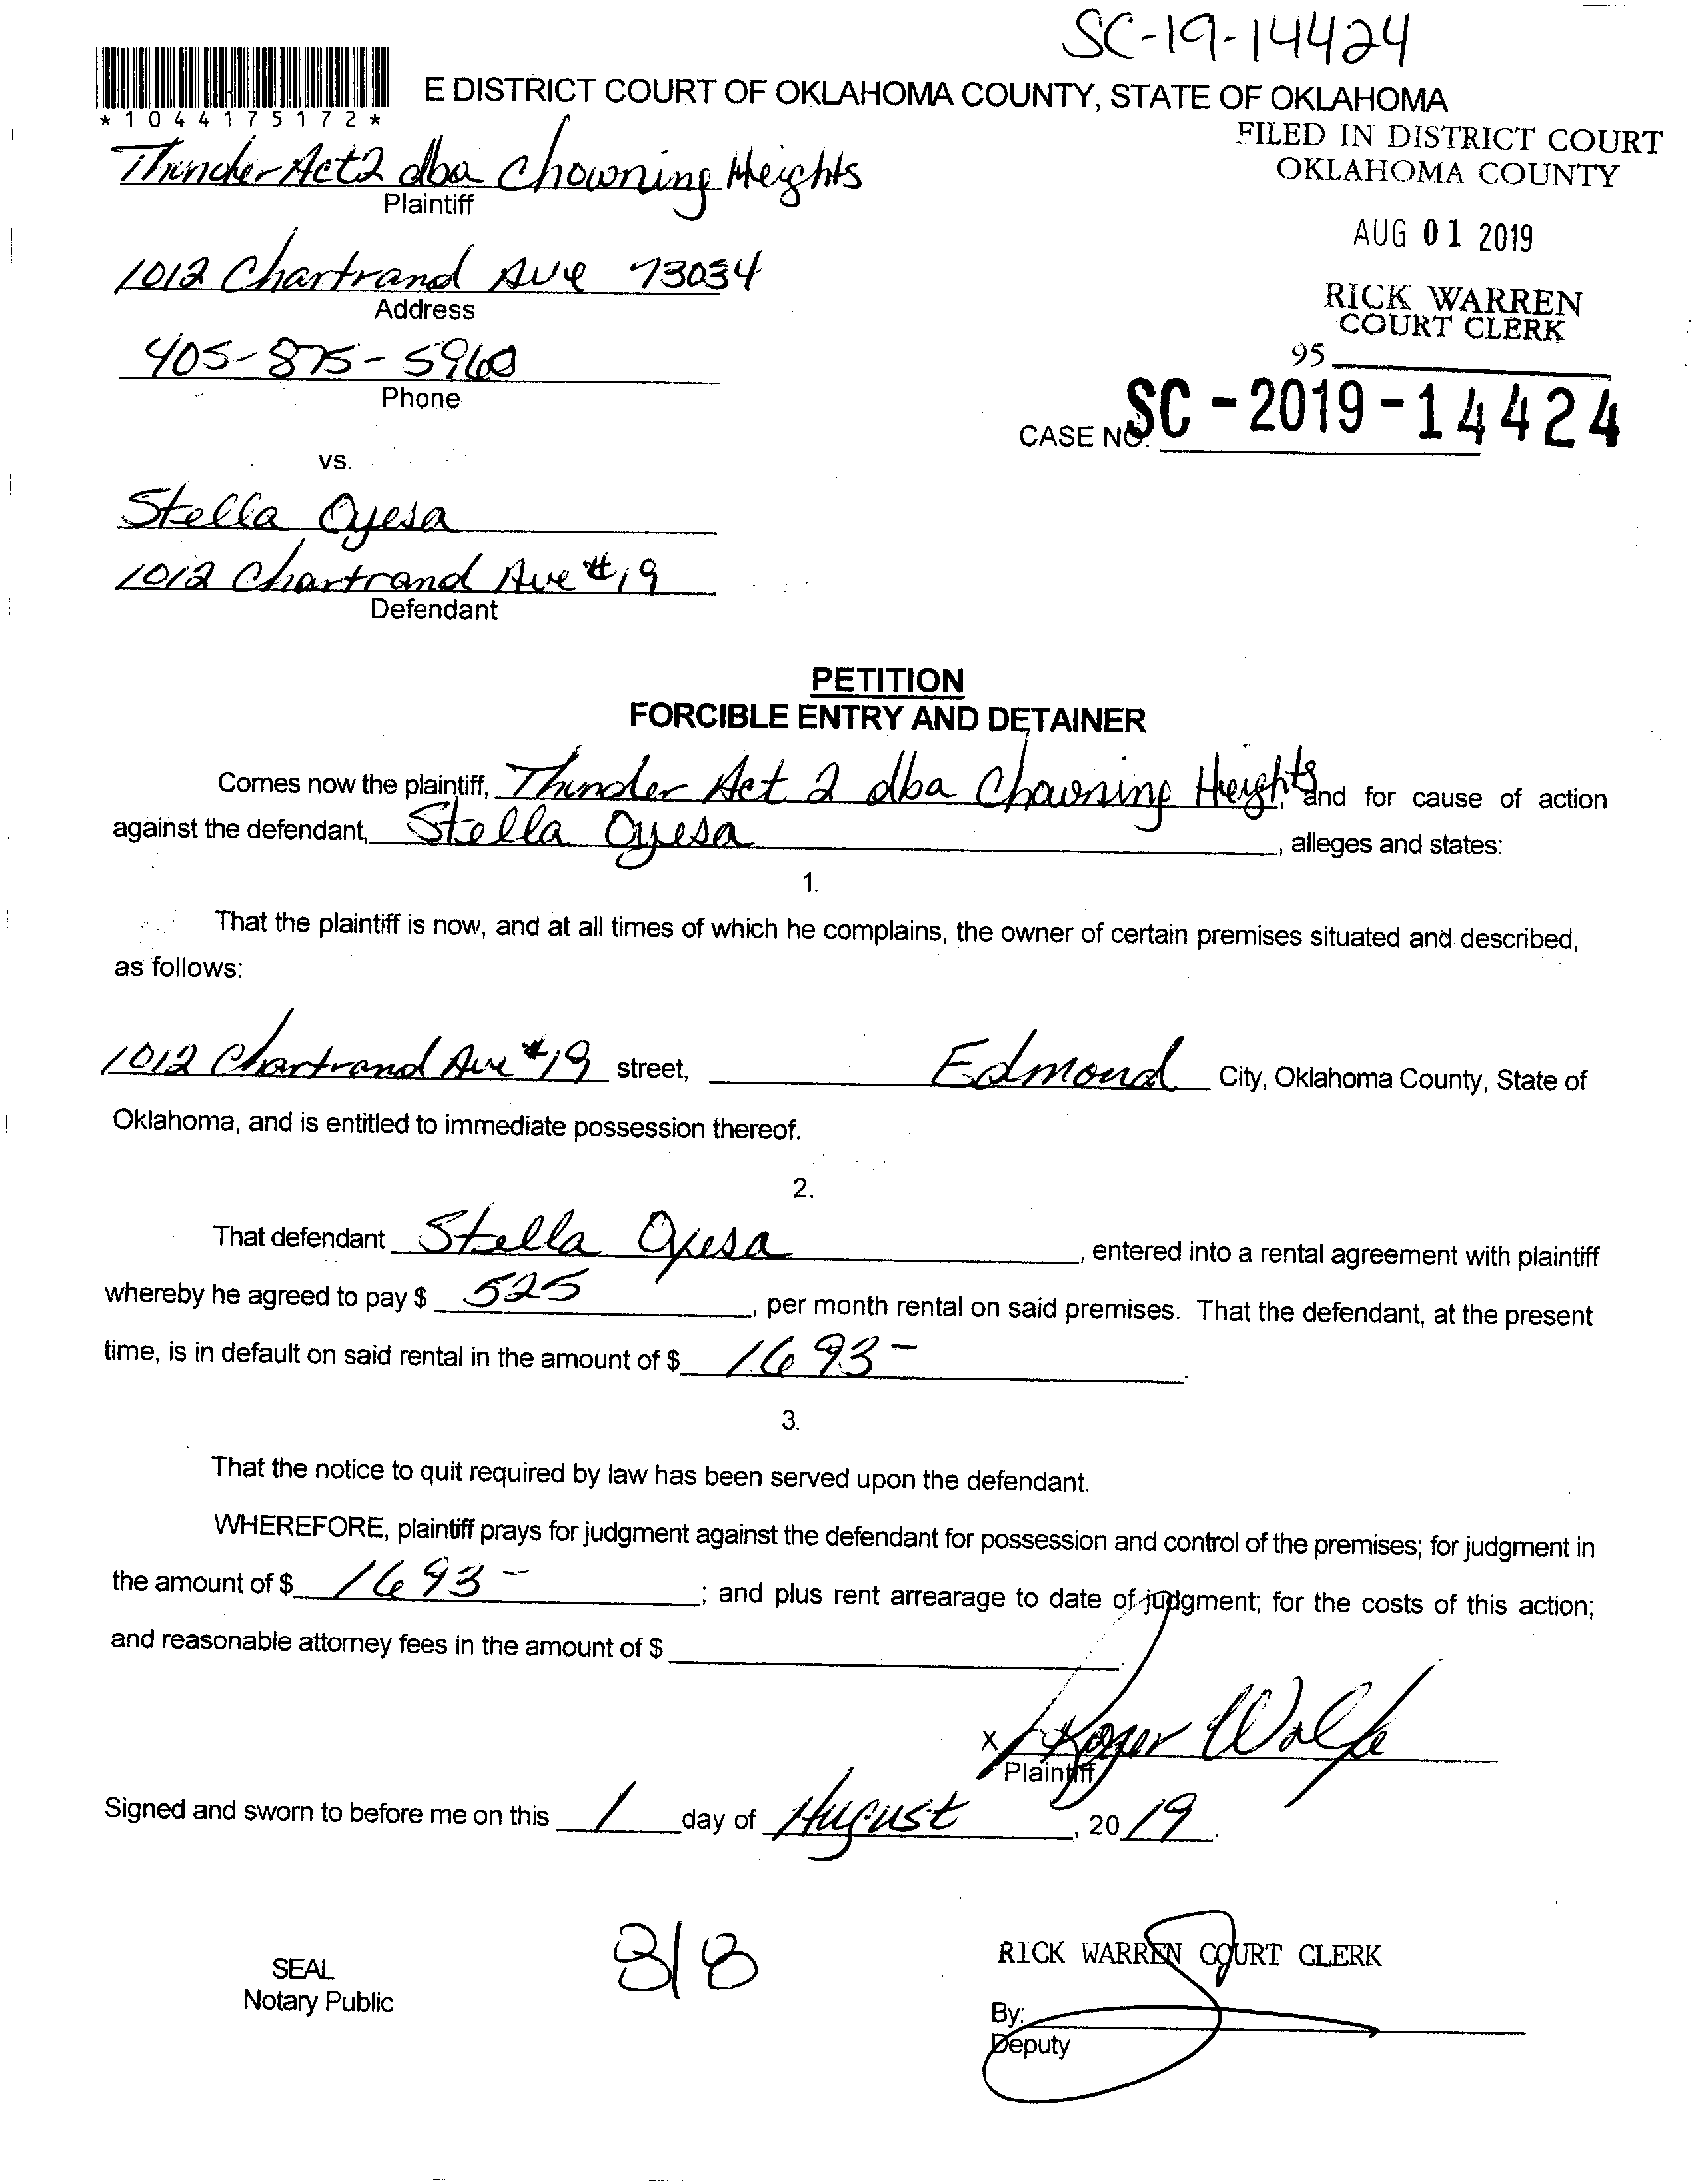 SC-19-14424
*1044175172*
E DISTRICT COURT OF OKLAHOMA COUNTY, STATE OF OKLAHOMA
FILED IN DISTRICT COURT
OKLAHOMA COUNTY
Thunder Act 2 dba Chowning Heights
Plaintiff
AUG 01 2019
1012 Chartrand Ave 73034
Address
RICK WARREN
COURT CLERK
405-875-5960
Phone
95
CASE NO. SC-2019-14424
vs.
Stella Oyesa
1012 Chartrand Ave #19
Defendant
PETITION
FORCIBLE ENTRY AND DETAINER
Comes now the plaintiff, Thunder Act 2 dba Chowning Heights, and for cause of action
against the defendant, Stella Oyesa, alleges and states:
1.
That the plaintiff is now, and at all times of which he complains, the owner of certain premises situated and described,
as follows:
1012 Chartrand Ave #19 street, Edmond City, Oklahoma County, State of
Oklahoma, and is entitled to immediate possession thereof.
2.
That defendant Stella Oyesa, entered into a rental agreement with plaintiff
whereby he agreed to pay $ 525, per month rental on said premises. That the defendant, at the present
time, is in default on said rental in the amount of $ 1693-.
3.
That the notice to quit required by law has been served upon the defendant.
WHEREFORE, plaintiff prays for judgment against the defendant for possession and control of the premises; for judgment in
the amount of $ 1693-; and plus rent arrearage to date of judgment; for the costs of this action;
and reasonable attorney fees in the amount of $
x Roger Wolfe
Plaintiff
Signed and sworn to before me on this 1 day of August, 2019.
SEAL
Notary Public
8/8
RICK WARREN COURT CLERK
By:
Deputy